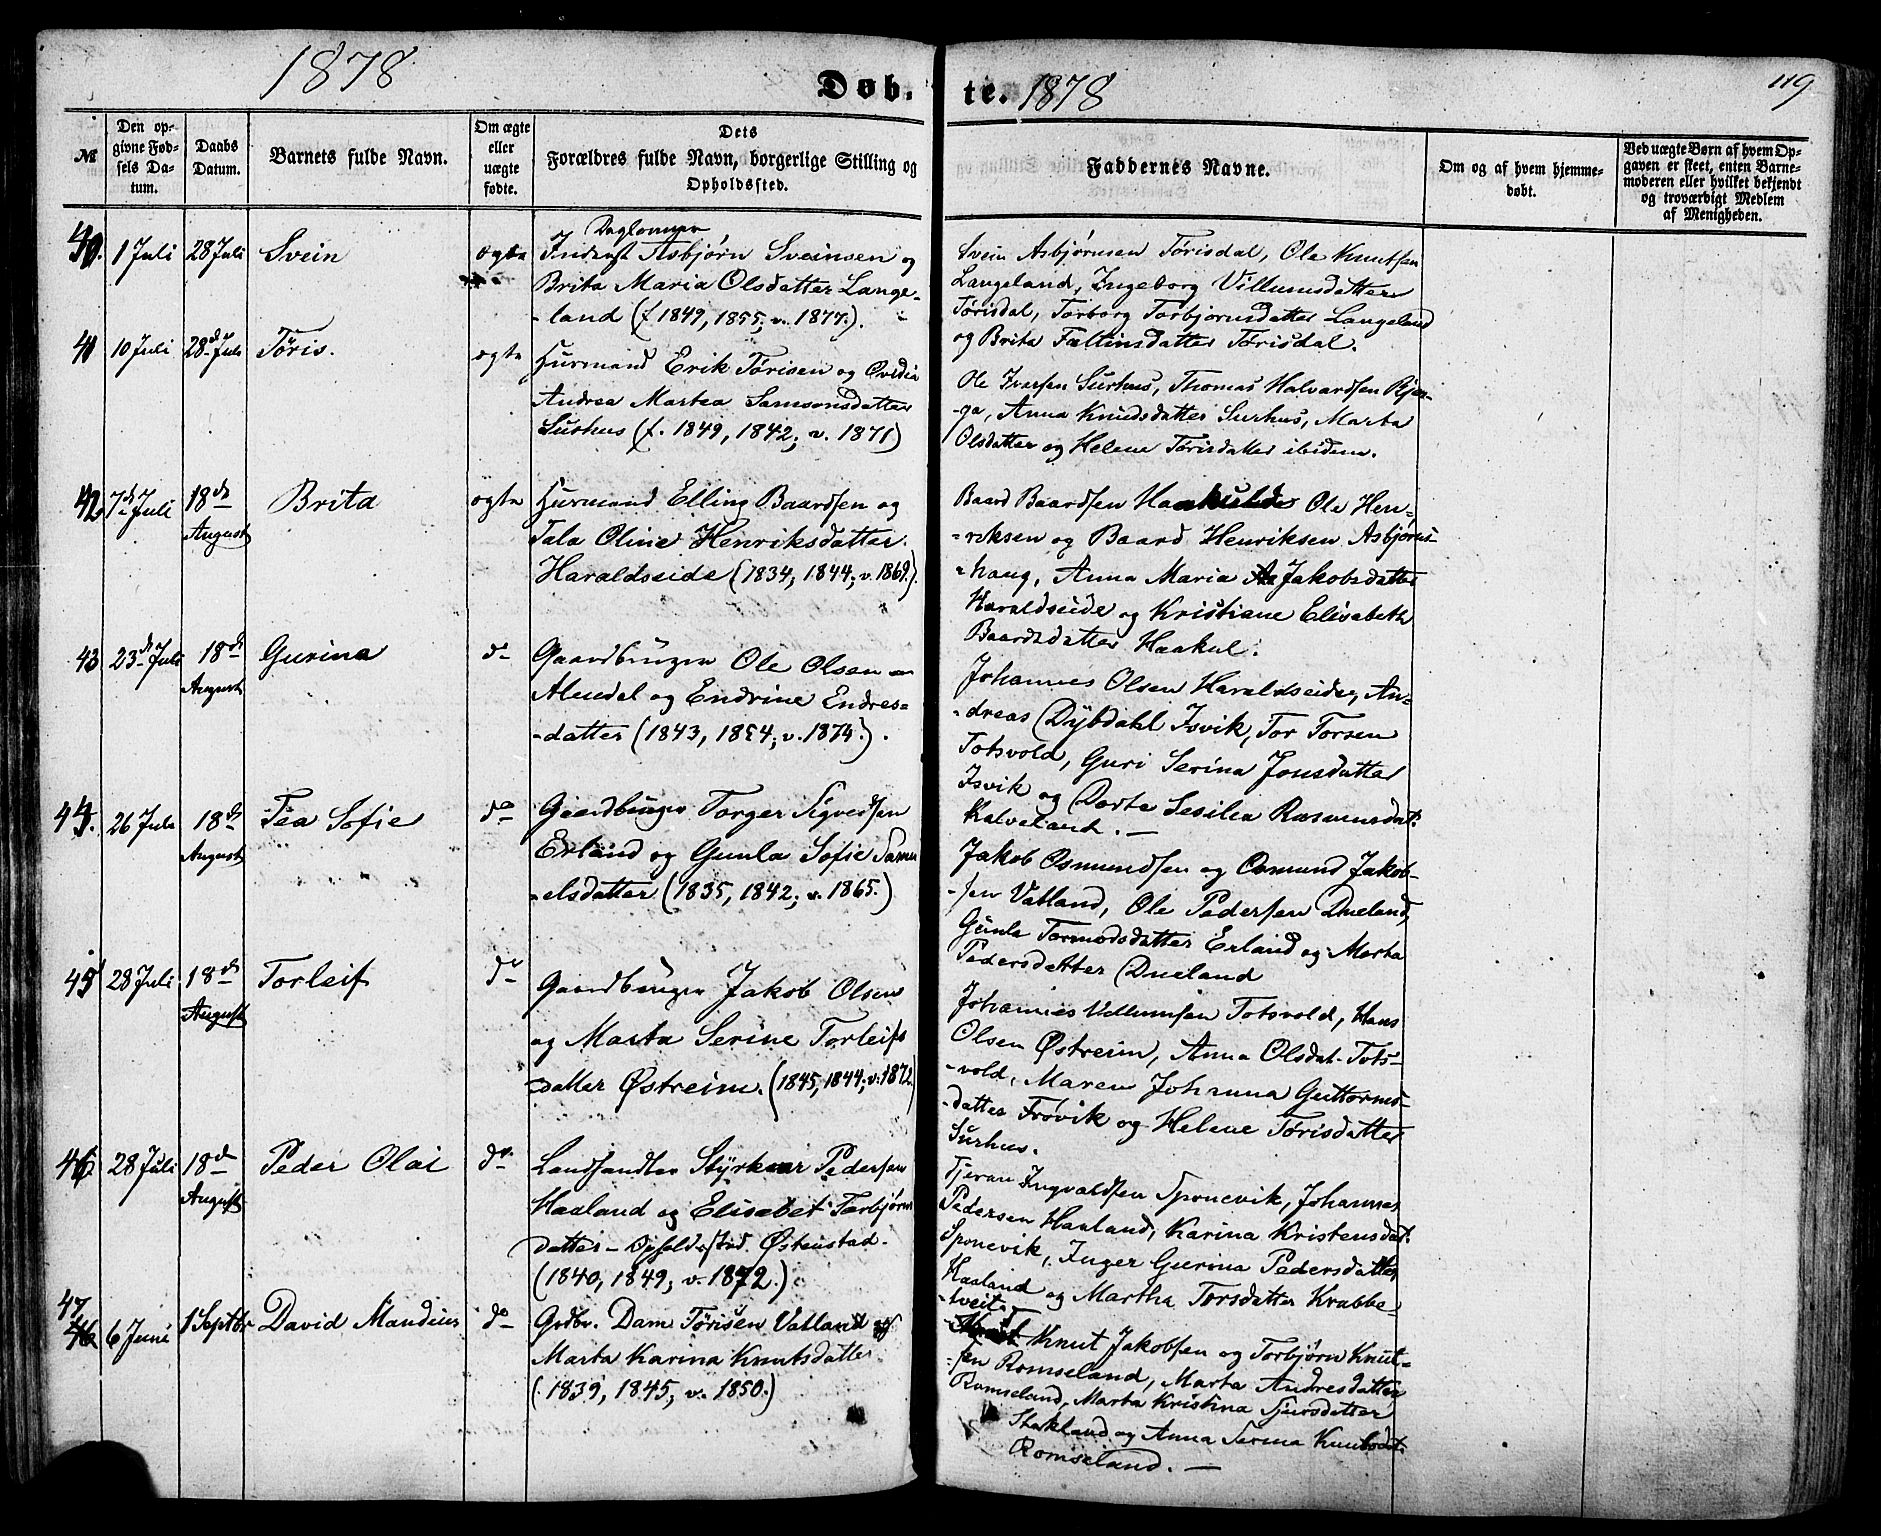 1878
Døb-
te. 1878
119
№
Den op-
givne Fød-
sels Da-
tum.
Daabs
Datum.
Barnets fulde Navn.
Om ægte
eller
uægte
fødte.
Dets
Forældres fulde Navn, borgerlige Stilling og
Opholdssted.
Faddernes Navne.
Om og af hvem hjemme-
døbt.
Ved uægte Børn af hvem Op-
gaven er skeet, enten Barne-
moderen eller hvilket bekjendt
og troværdigt Medlem
af Menigheden.
40. 1 Juli 28 Juli Svein ægte
Daglonner
Inderst Asbjørn Sveinsen og
Brita Maria Olsdatter Lange-
-land (f. 1849, 1855; v. 1877.).
Svein Asbjørnsen Tørisdal, Ole Knutsen
Langeland, Ingeborg Villumsdatter
Tørisdal, Torborg Torbjørnsdatter Langeland
og Brita Faltinsdatter Tørisdal.
41 10 Juli 28d Juli Tøris. ægte
Husmand Erik Tørisen og Ovedia
Andrea Martea Samsonsdatter
Surhus (f. 1849, 1842; v. 1871)
Ole Iversen Surhus, Thomas Halvardsen Bjer-
-ga, Anna Knudsdatter Surhus, Marta
Olsdatter og Helene Tørisdatter ibidem.
42 7d Juli 18de
August
Brita ægte
Husmand Elling Baardsen og
Tala Oline Henriksdatter
Haraldseide (1834, 1844; v. 1869.).
Baard Baardsen Haakuls Ole Hen-
-riksen og Baard Henriksen Asbjørns-
-haug, Anna Maria Jakobsdatter
Haraldseide og Kristiane Elisabeth
Baardsdatter Haakul.
43 23d Juli 18de
August
Gurina do
Gaardbruger Ole Olsen
Almdal og Endrine Endres-
-datter (1843, 1854; v. 1874.).
Johannes Olsen Haraldseide, An-
-dreas Dybdahl Isvik, Tor Torsen
Totsvold, Guri Serina Jonsdatter
Isvik og Dorte Sesilia Rasmusdat.
Kalveland. —
44. 26 Juli 18de
August
Tea Sofie do
Gaardbruger Torger Sigvedsen
Erland og Gunla Sofie Samu
-elsdatter (1835, 1842; v. 1865.)
Jakob Osmundsen og Osmund Jakob-
-sen Vatland, Ole Pedersen Dueland,
Gunla Tormodsdatter Erland og Marta
Pedersdatter Dueland
45 28 Juli 18de
August
Torleif do
Gaardbruger Jakob Olsen
og Marta Serine Torleifs
-datter Østreim. (1845, 1844; v. 1872.)
Johannes Vellumsen Totsvold, Hans
Olsen Østreim, Anna Olsdat. Tots-
-vold, Maren Johanna Guttorms-
-datter Frøvik og Helene Tørisdatter
Surhus.
46 28 Juli 18de
August
Peder Olai do
Landhandler Styrkaar Pedersen
Haaland og Elisabet Torbjørns
datter — Opholdssted Østenstad.
(1840, 1849, v. 1872.)
Tjeran Ingvaldsen Sponevik, Johannes
Pedersen Haaland, Karina Kristensdat.
Sponevik, Inger Gurina Pedersdatter
Haaland og Martha Torsdatter Krabbe-
-tveit.
47
46 6 Juni 1 Septbr David Mandius do
Gdbr. Dam Tørisen Vatland og
Marta Karina Knutsdatter
(1839, 1845, v. 1850.)
Knut Jakobsen og Torbjørn Knut-
-sen Romseland, Marta Andresdatter
Romseland, Marta Kristina Tjersdatter
Stakland og Anna Serina Knutsdat.
Romseland. —